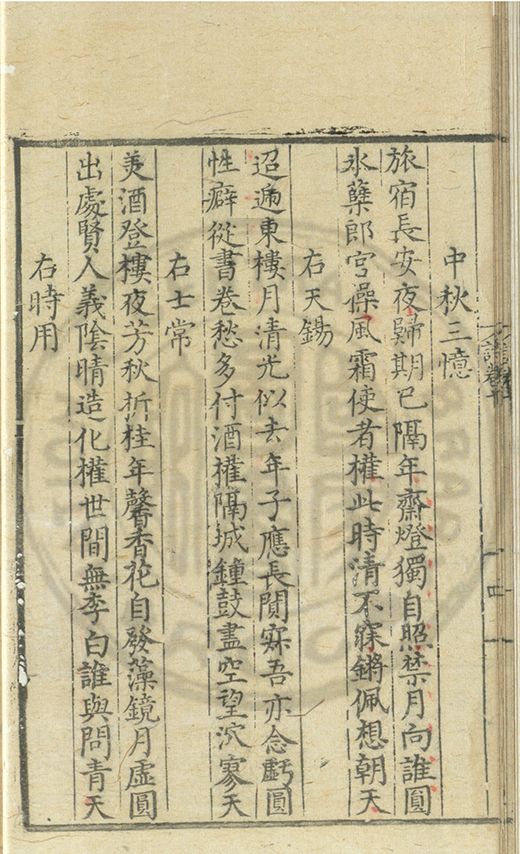 中秋三憶
旅宿長安夜歸期已隔年齋燈獨自照禁月向誰圓
氷蘗郎官操風霜使者權此時清不寐鏘佩想朝天
右天錫
迢遞東樓月清光似去年子應長閴寐吾亦念虧圓
性癖從書卷愁多付酒權隔城鍾鼓盡空望泬寥天
右士常
美酒登樓夜芳秋折桂年馨香花自發藻鏡月虛圓
出處賢人義陰晴造化權世間無李白誰與問青天
右時用